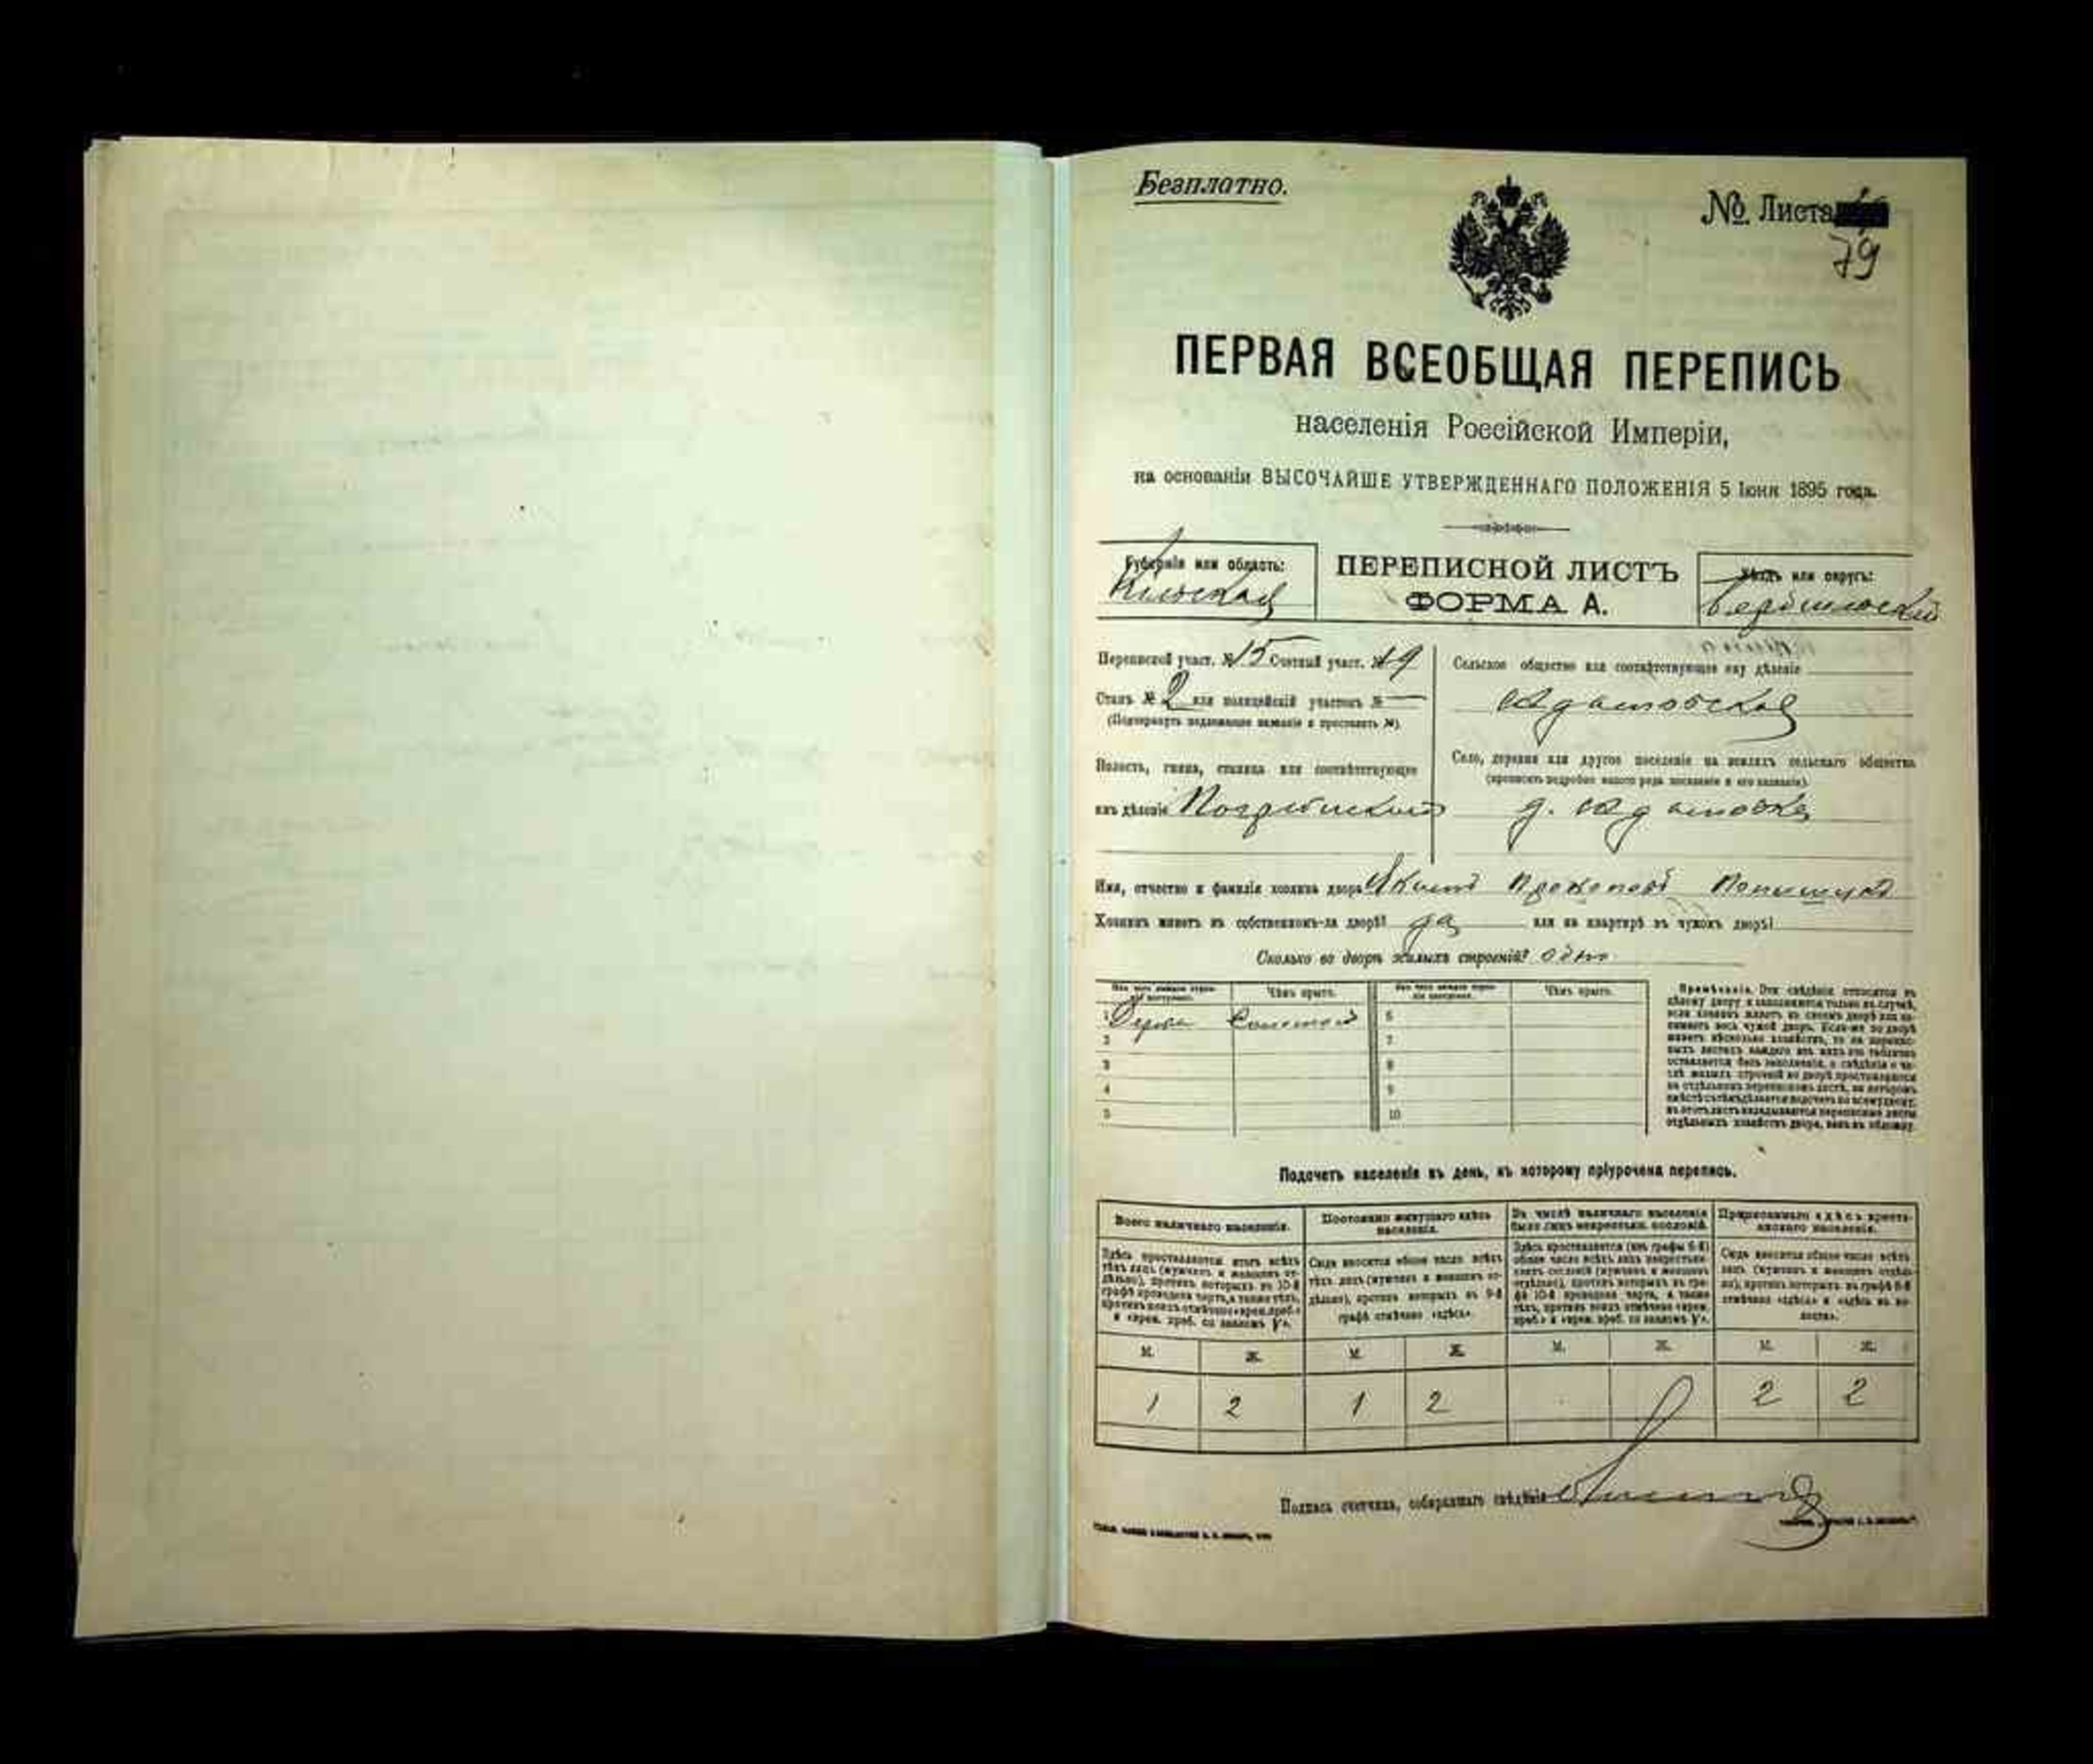 Безплатно.
№ Листа
79
ПЕРВАЯ ВСЕОБЩАЯ ПЕРЕПИСЬ
населенія Россійской Имперіи,
на основаніи ВЫСОЧАЙШЕ УТВЕРЖДЕННАГО ПОЛОЖЕНІЯ 5 Іюня 1895 года.
Губернія или область:
Кіевская
ПЕРЕПИСНОЙ ЛИСТЪ
ФОРМА А.
Уѣздъ или округъ:
Бердичевскій
Переписной участ. № 15 Счетный участ. № 19
Станъ № 2 или полицейскій участокъ № —
(Подчеркнуть подлежащее названіе и проставить №)
Волость, гмина, станица или соотвѣтствующее
имъ дѣленіе
Сельское общество или соотвѣтствующее ему дѣленіе
Село, деревня или другое поселеніе на земляхъ сельскаго общества
(прописать подробно какого рода поселеніе и его названіе).
д.
Имя, отчество и фамилія хозяина двора
Хозяинъ живетъ въ собственномъ-ли дворѣ? да или на квартирѣ въ чужомъ дворѣ?
Сколько во дворѣ жилыхъ строеній? одно
Чѣмъ крыто.
Чѣмъ крыто.
1 Дерева Соломой
2
3
4
5
6
7
8
9
10
Примѣчаніе. Эти свѣдѣнія относятся къ
цѣлому двору и заполняются только въ случаѣ,
если хозяинъ живетъ въ своемъ дворѣ или за-
нимаетъ весь чужой дворъ. Если-же во дворѣ
живетъ нѣсколько хозяйствъ, то на перепис-
ныхъ листахъ каждаго изъ нихъ эта табличка
оставляется безъ заполненія, а свѣдѣнія о чи-
слѣ жилыхъ строеній во дворѣ проставляются
на отдѣльномъ переписномъ листѣ, на которомъ
въ этотъ листъ вкладываются переписные листы
отдѣльныхъ хозяйствъ двора, какъ въ обложку.
Подсчетъ населенія въ день, къ которому пріурочена перепись.
Всего наличнаго населенія.
Здѣсь проставляются итогъ всѣхъ
тѣхъ лицъ (мужчинъ и женщинъ от-
дѣльно), противъ которыхъ въ 10-й
графѣ проведена черта, а также тѣхъ,
противъ коихъ отмѣчено «врем. преб.»
и «врем. преб. со знакомъ V».
Постоянно живущаго здѣсь
населенія.
Сюда вносится общее число всѣхъ
тѣхъ лицъ (мужчинъ и женщинъ от-
дѣльно), противъ которыхъ въ 9-й
графѣ отмѣчено «здѣсь».
Въ числѣ наличнаго населенія
было лицъ некрестьян. сословій.
Здѣсь проставляется (изъ графы 6-й)
общее число всѣхъ лицъ некрестьян-
скихъ сословій (мужчинъ и женщинъ
отдѣльно), противъ коихъ въ гра-
фѣ 10-й проведена черта, а также
тѣхъ, противъ коихъ отмѣчено «врем.
преб.» и «врем. преб. со знакомъ V».
Приписаннаго здѣсь кресть-
янскаго населенія.
Сюда вносится общее число всѣхъ
лицъ (мужчинъ и женщинъ отдѣль-
но), противъ которыхъ въ графѣ 8-й
отмѣчено «здѣсь» и «здѣсь въ во-
лости».
М. Ж. М. Ж. М. Ж. М. Ж.
1 2 1 2 2 2
Подпись счетчика, собиравшаго свѣдѣнія